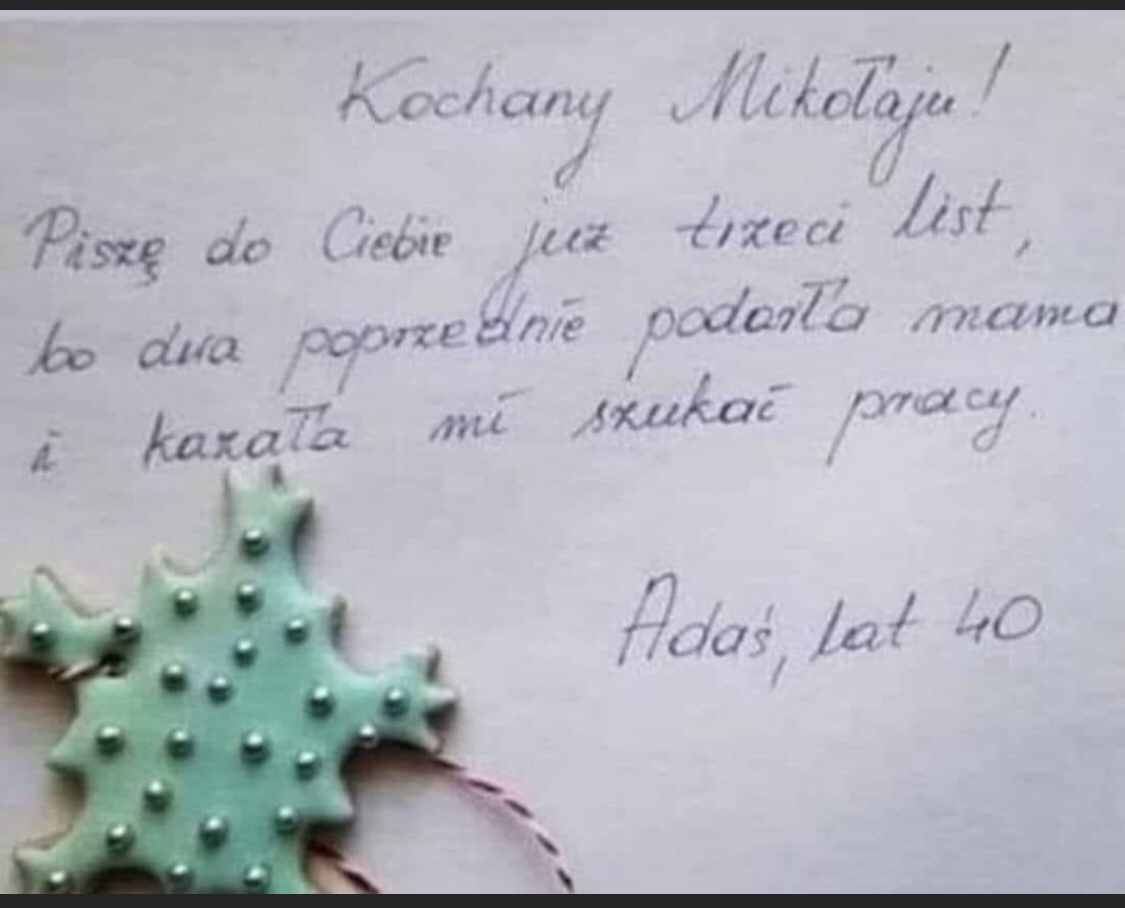 Kochany Mikołaju!
Piszę do Ciebie już trzeci list,
bo dwa poprzednie podarła mama
i kazała mi szukać pracy.
Adaś, lat 40